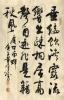 垂緌飲清露流
響出疏桐居高
聲自遠非是藉
秋風